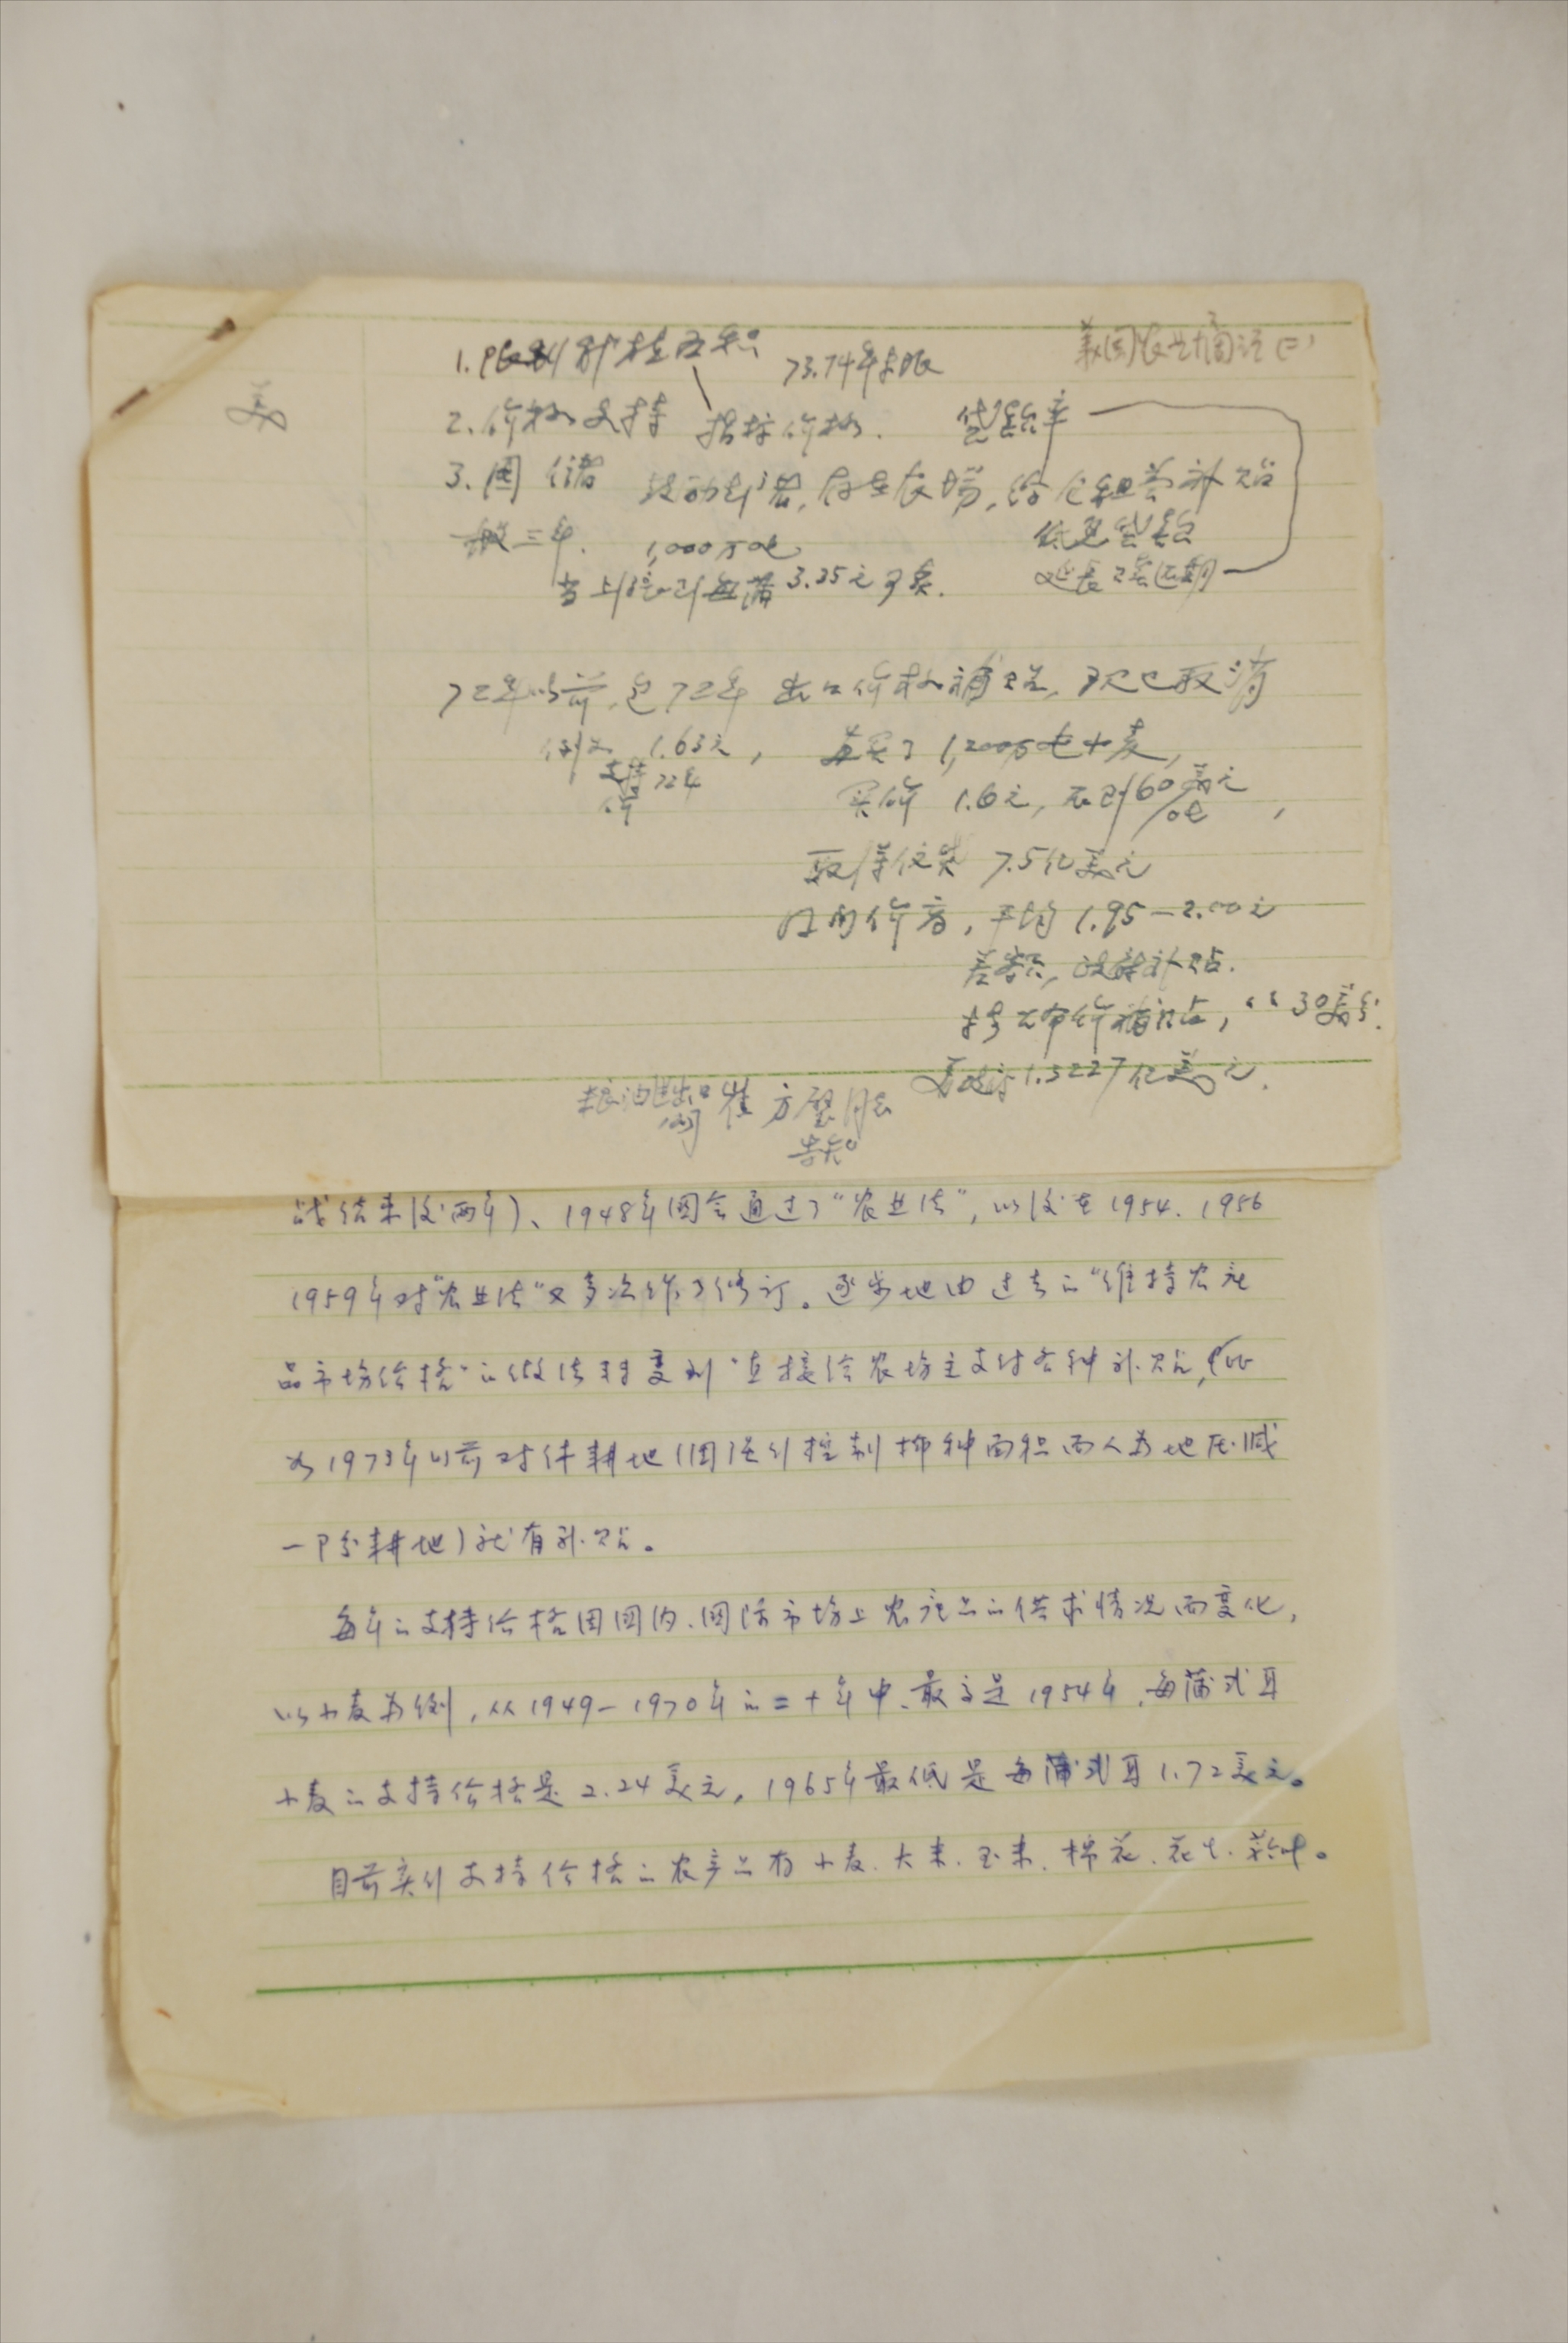 美国农业摘注(二)
美
1.限制耕种面积 73.74年未限
2.价格支持 指标价格. 贷款率
3.国储 鼓励私储,存在农场,给仓租营补贴
一般三年. 1,000万吨 低息贷款
当上涨到每蒲3.35元可卖. 延长还期
72年以前,包72年 出口价格補贴,现已取消
例如 1.63元, 苏买了1,200万吨小麦,
支持价 72年
买价 1.6元,不到60美元/吨,
取得信贷 7.5亿美元
国内价高,平均 1.95-2.00元
差额,政府补贴.
30美分.
1.3227亿美元.
粮油进出口公司崔方璧同志
告知
战结束后两年)、1948年国会通过了“农业法”,以后在1954.1956
1959年对“农业法”又多次作了修订。逐步地由过去的“维持农产
品市场价格”的做法转变到“直接给农场主支付各种补贴,(比
如1973年以前对休耕地(因强行控制播种面积而人为地压减
一部分耕地)就有补贴。
每年的支持价格因国内.国际市场上农产品的供求情况而变化,
以小麦为例,从1949-1970年的二十年中、最高是1954年,每蒲式耳
小麦的支持价格是2.24美元,1965年最低是每蒲式耳1.72美元。
目前实行支持价格的农产品有小麦.大米.玉米.棉花.花生.菸叶。